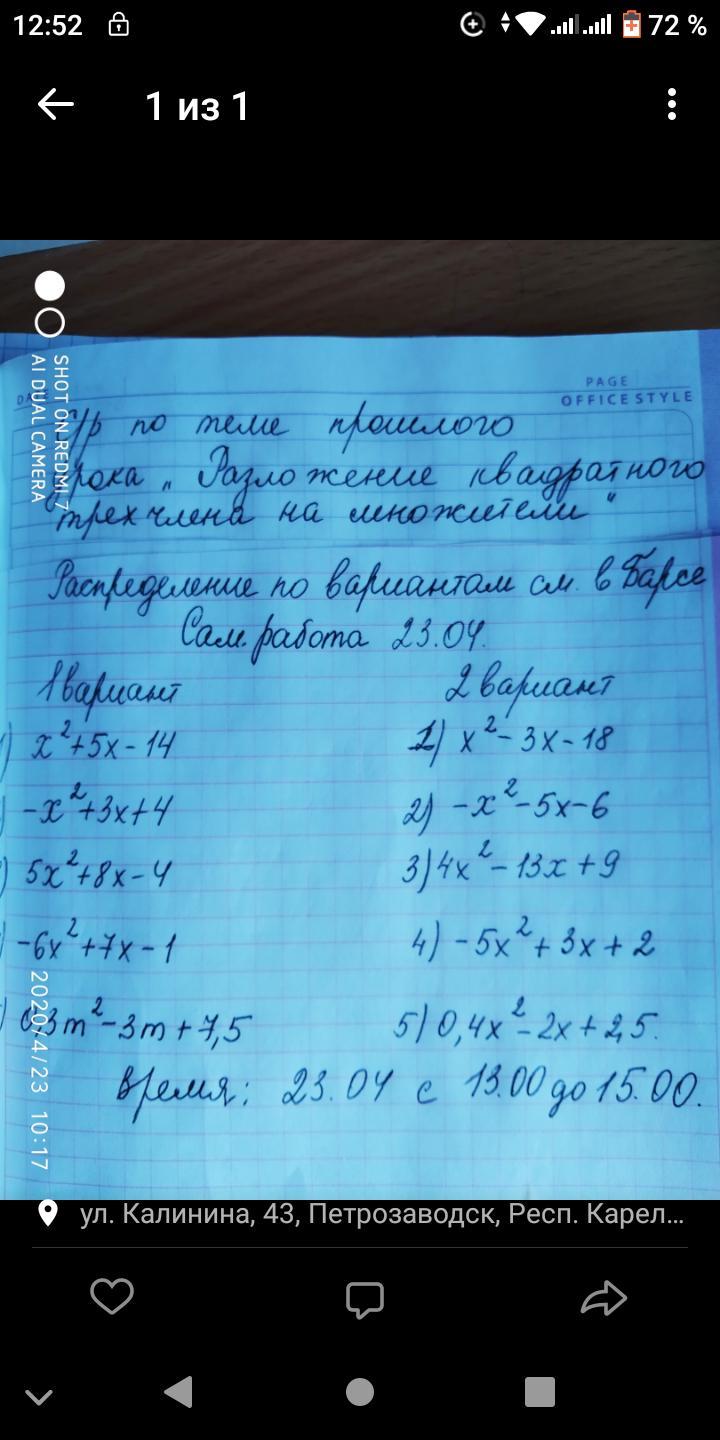 12:52
72 %
1 из 1
SHOT ON REDMI 7
AI DUAL CAMERA
PAGE
OFFICE STYLE
С/р по теме прошлого
урока „Разложение квадратного
трехчлена на множители"
Распределение по вариантам см. в Барсе
Сам. работа 23.04.
1 вариант
2 вариант
) x²+5x-14
1) x²-3x-18
) -x²+3x+4
2) -x²-5x-6
) 5x²+8x-4
3) 4x²-13x+9
) -6x²+7x-1
4) -5x²+3x+2
) 0,3m²-3m+7,5
5) 0,4x²-2x+2,5.
Время: 23.04 с 13.00 до 15.00.
2020/4/23 10:17
ул. Калинина, 43, Петрозаводск, Респ. Карел...